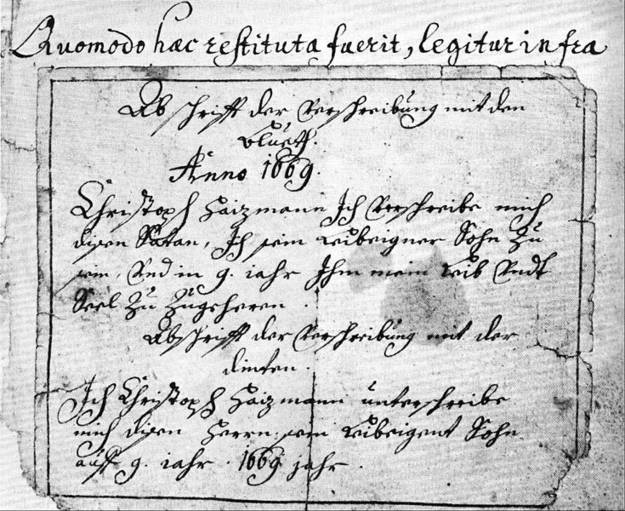 Quomodo haec restituta fuerit, legitur infra
Abschrifft der Verschreibung mit den
Blueth.
Anno 1669.
Christoph Haizmann Ich Verschreibe mich
disen Satan, Ich sein Leibeigner Sohn Zu
sein, Vnd in 9. iahr Ihm mein Leib Vndt
Seel Zu Zugeheren.
Abschrifft der Verschreibung mit der
dinten.
Ich Christoph Haizmann unterschreibe
mich disen Herrn: sein Leibeigent Sohn
auff 9. iahr. 1669 jahr.